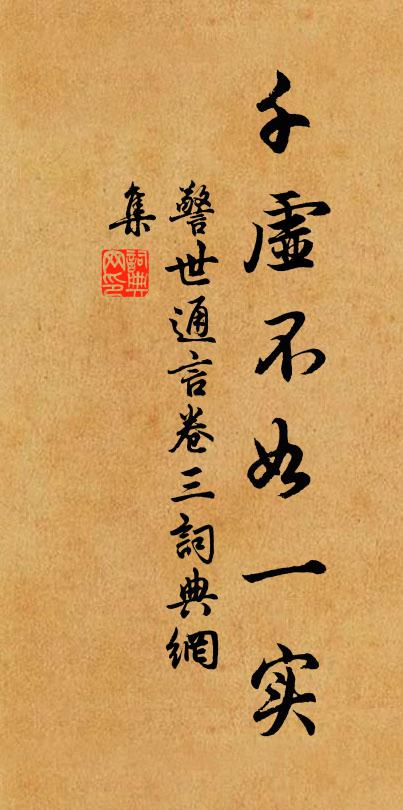 千虛不如一实
警世通言卷三詞典網
集
詞典
网印